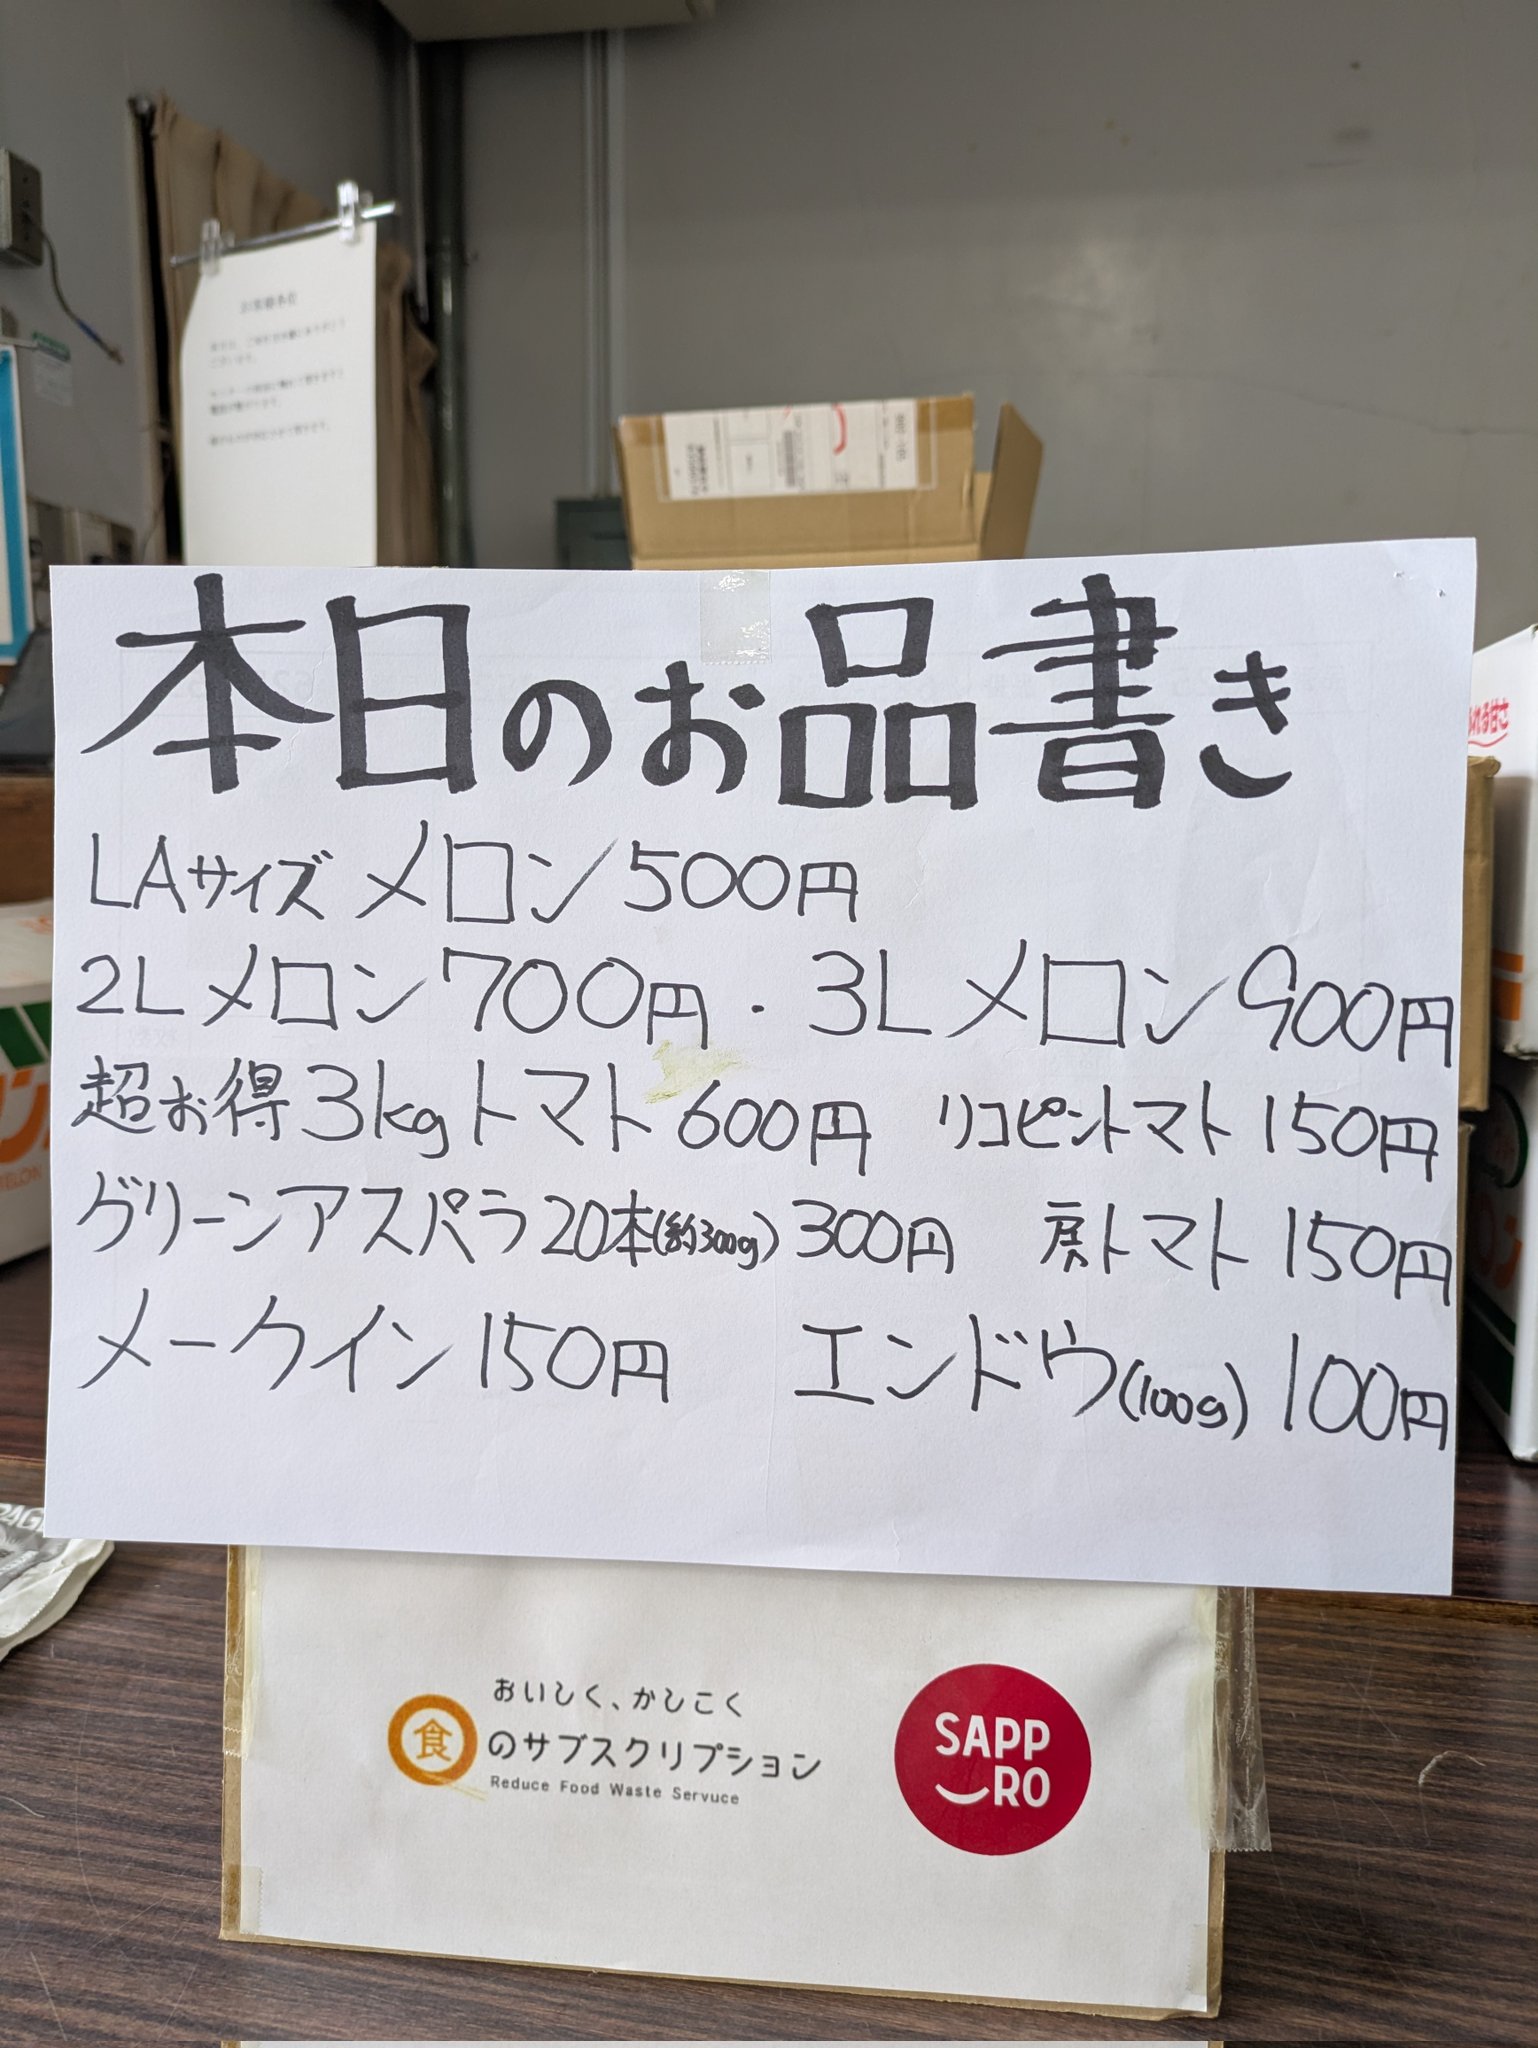 本日のお品書き
LAサイズ メロン 500円
2L メロン 700円・3L メロン 900円
超お得 3kgトマト 600円 リコピントマト 150円
グリーンアスパラ 20本(約300g) 300円 房トマト 150円
メークイン 150円 エンドウ(100g) 100円
おいしく、かしこく
食のサブスクリプション
Reduce Food Waste Servuce
SAPP
RO